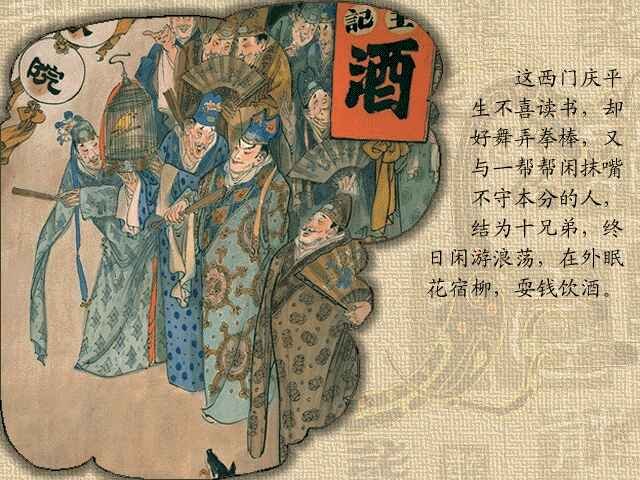 院
記
酒
这西门庆平
生不喜读书，却
好舞弄拳棒，又
与一帮帮闲抹嘴
不守本分的人，
结为十兄弟，终
日闲游浪荡，在外眠
花宿柳，耍钱饮酒。